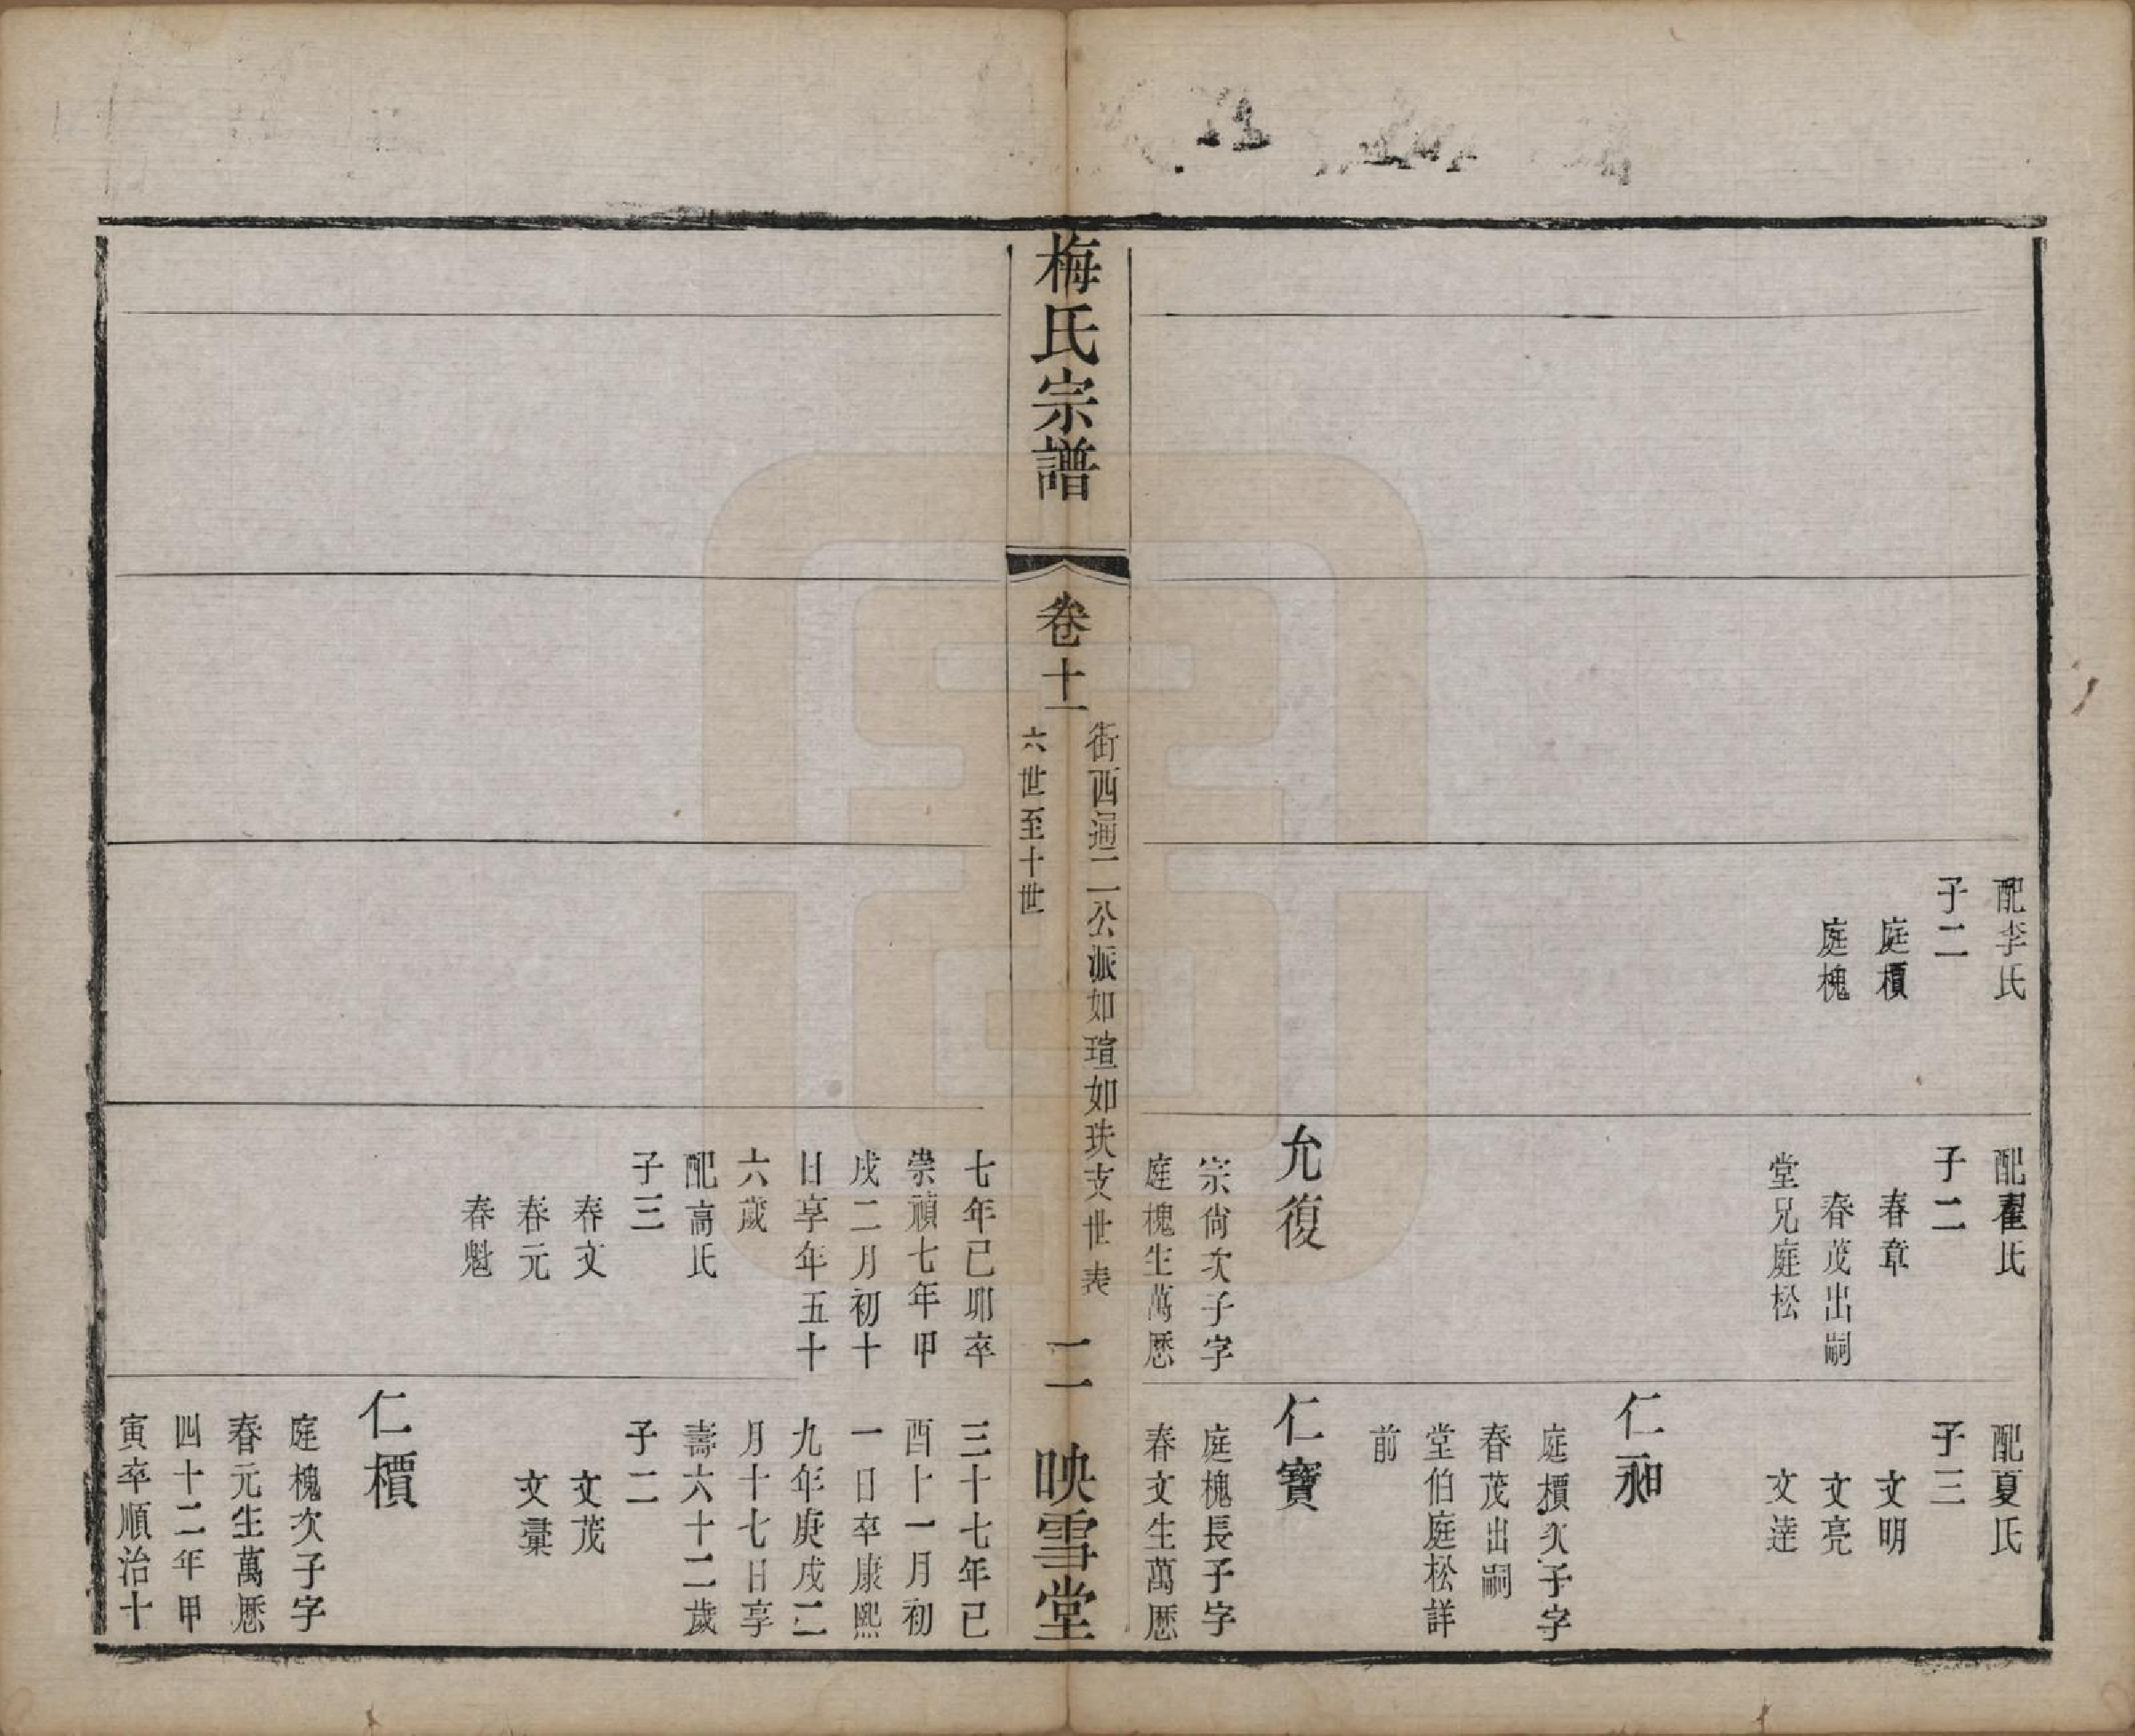 配李氏
子二
庭檟
庭槐
配翟氏
子二
春章
春茂出嗣
堂兄庭松
允復
宗尙次子字
庭槐生萬厯
配夏氏
子三
文明
文亮
文達
仁和
庭檟次子字
春茂出嗣
堂伯庭松詳
前
仁寶
庭槐長子字
春文生萬厯
梅氏宗譜
卷十一
街西通二公派如瑄如玞支世表
六世至十世
二
映雪堂
七年己卯卒
崇禎七年甲
戌二月初十
日享年五十
六歲
配高氏
子三
春文
春元
春魁
三十七年己
酉十一月初
一日卒康熙
九年庚戌二
月十七日享
壽六十二歲
子二
文茂
文彙
仁檟
庭槐次子字
春元生萬厯
四十二年甲
寅卒順治十